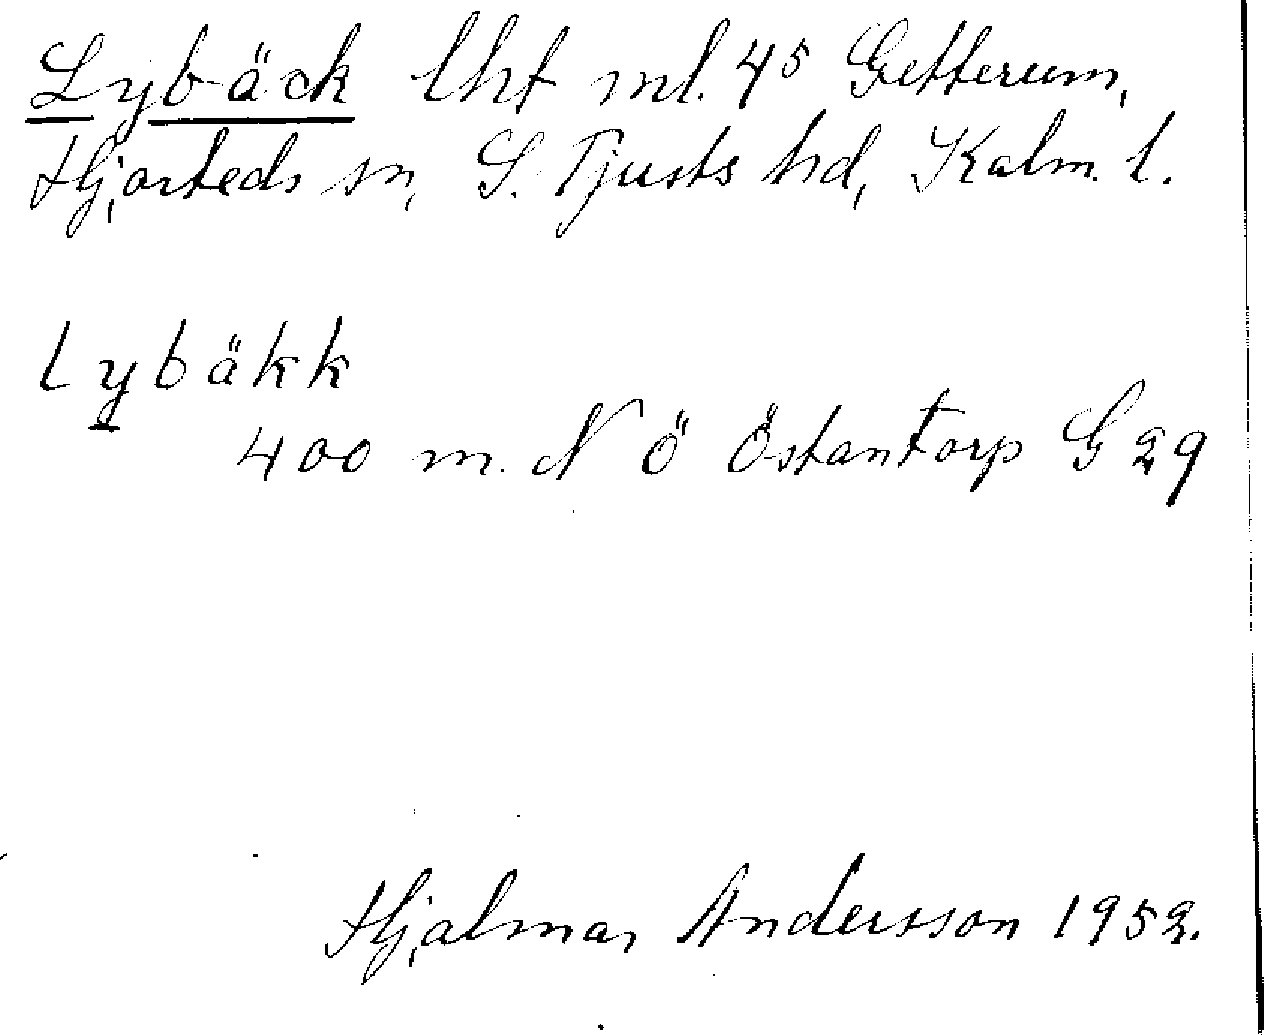 Lybäck lht ml. 45 Getterum,
Hjorteds sn, S. Tjusts hd, Kalm. l.
Lybäkk
400 m. N Ö Östantorp G 29
Hjalmar Andersson 1952.